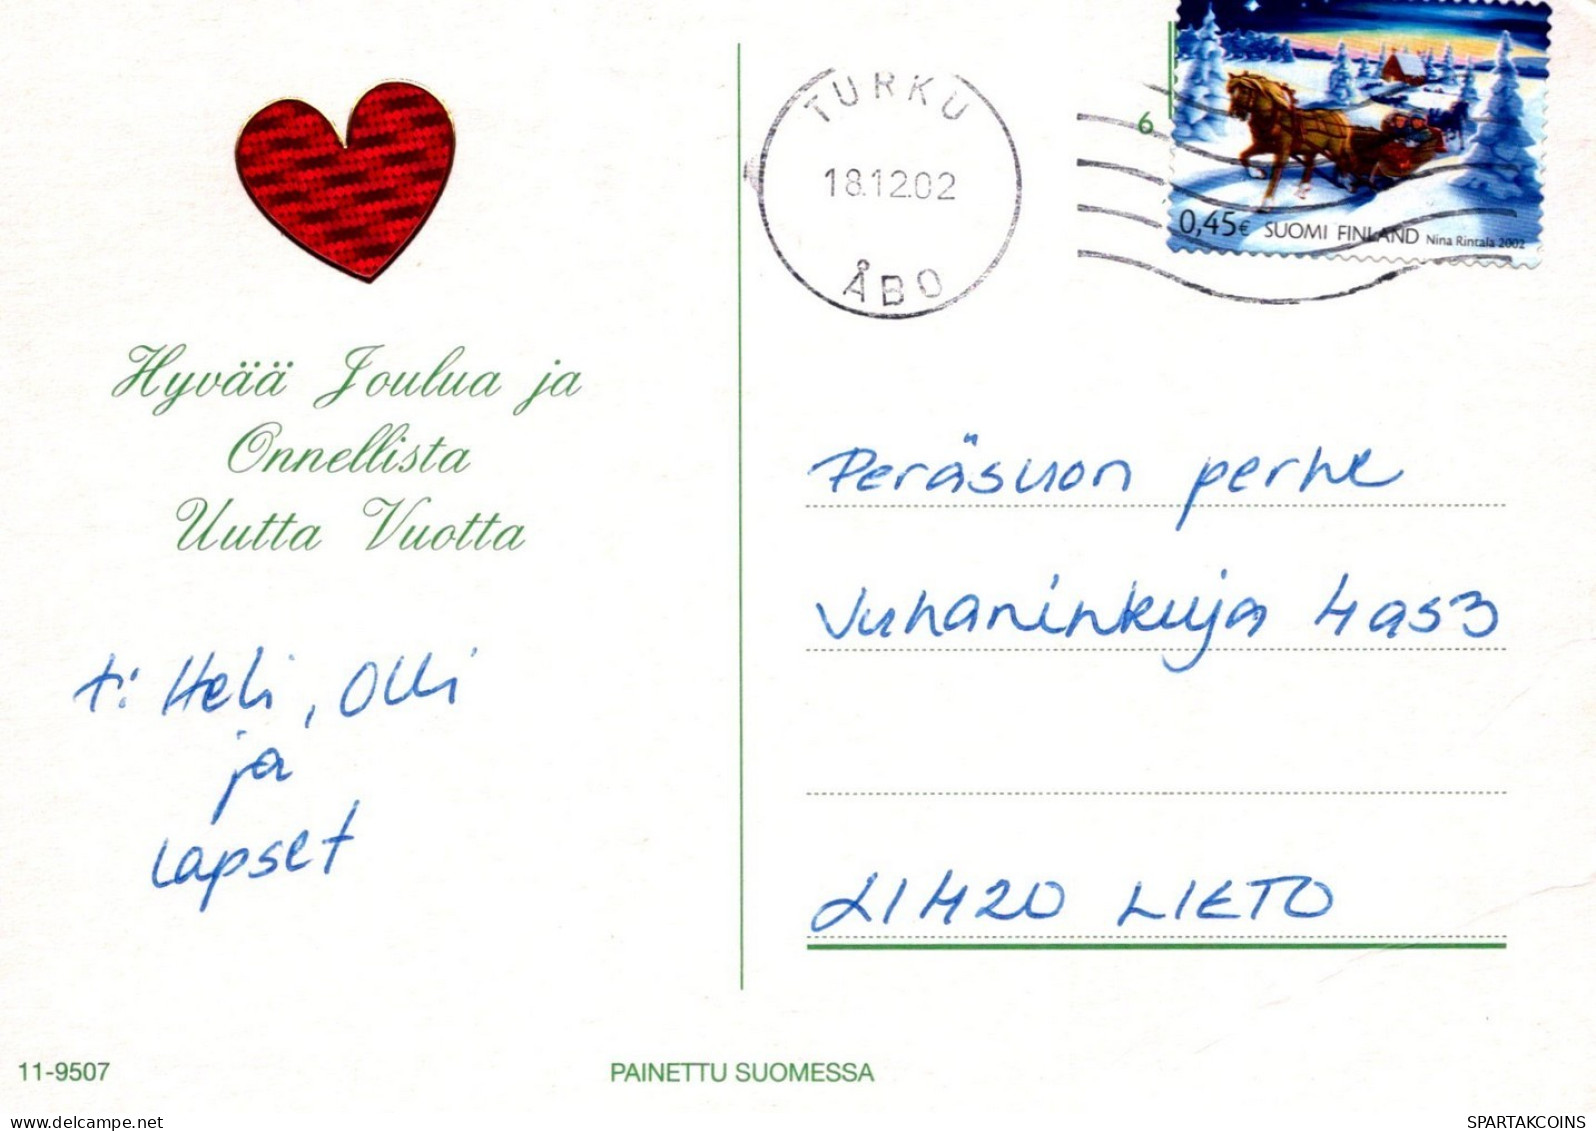 TURKU
18.12.02
ÅBO
6
0,45€ SUOMI FINLAND Nina Rintala 2002
Hyvää Joulua ja
Onnellista
Uutta Vuotta
t: Heli, Olli
ja
Lapset
Peräsuon perhe
Vuhaninkuja 4 as 3
21420 LIETO
11-9507
PAINETTU SUOMESSA
delcampe.net
SPARTAKCOINS